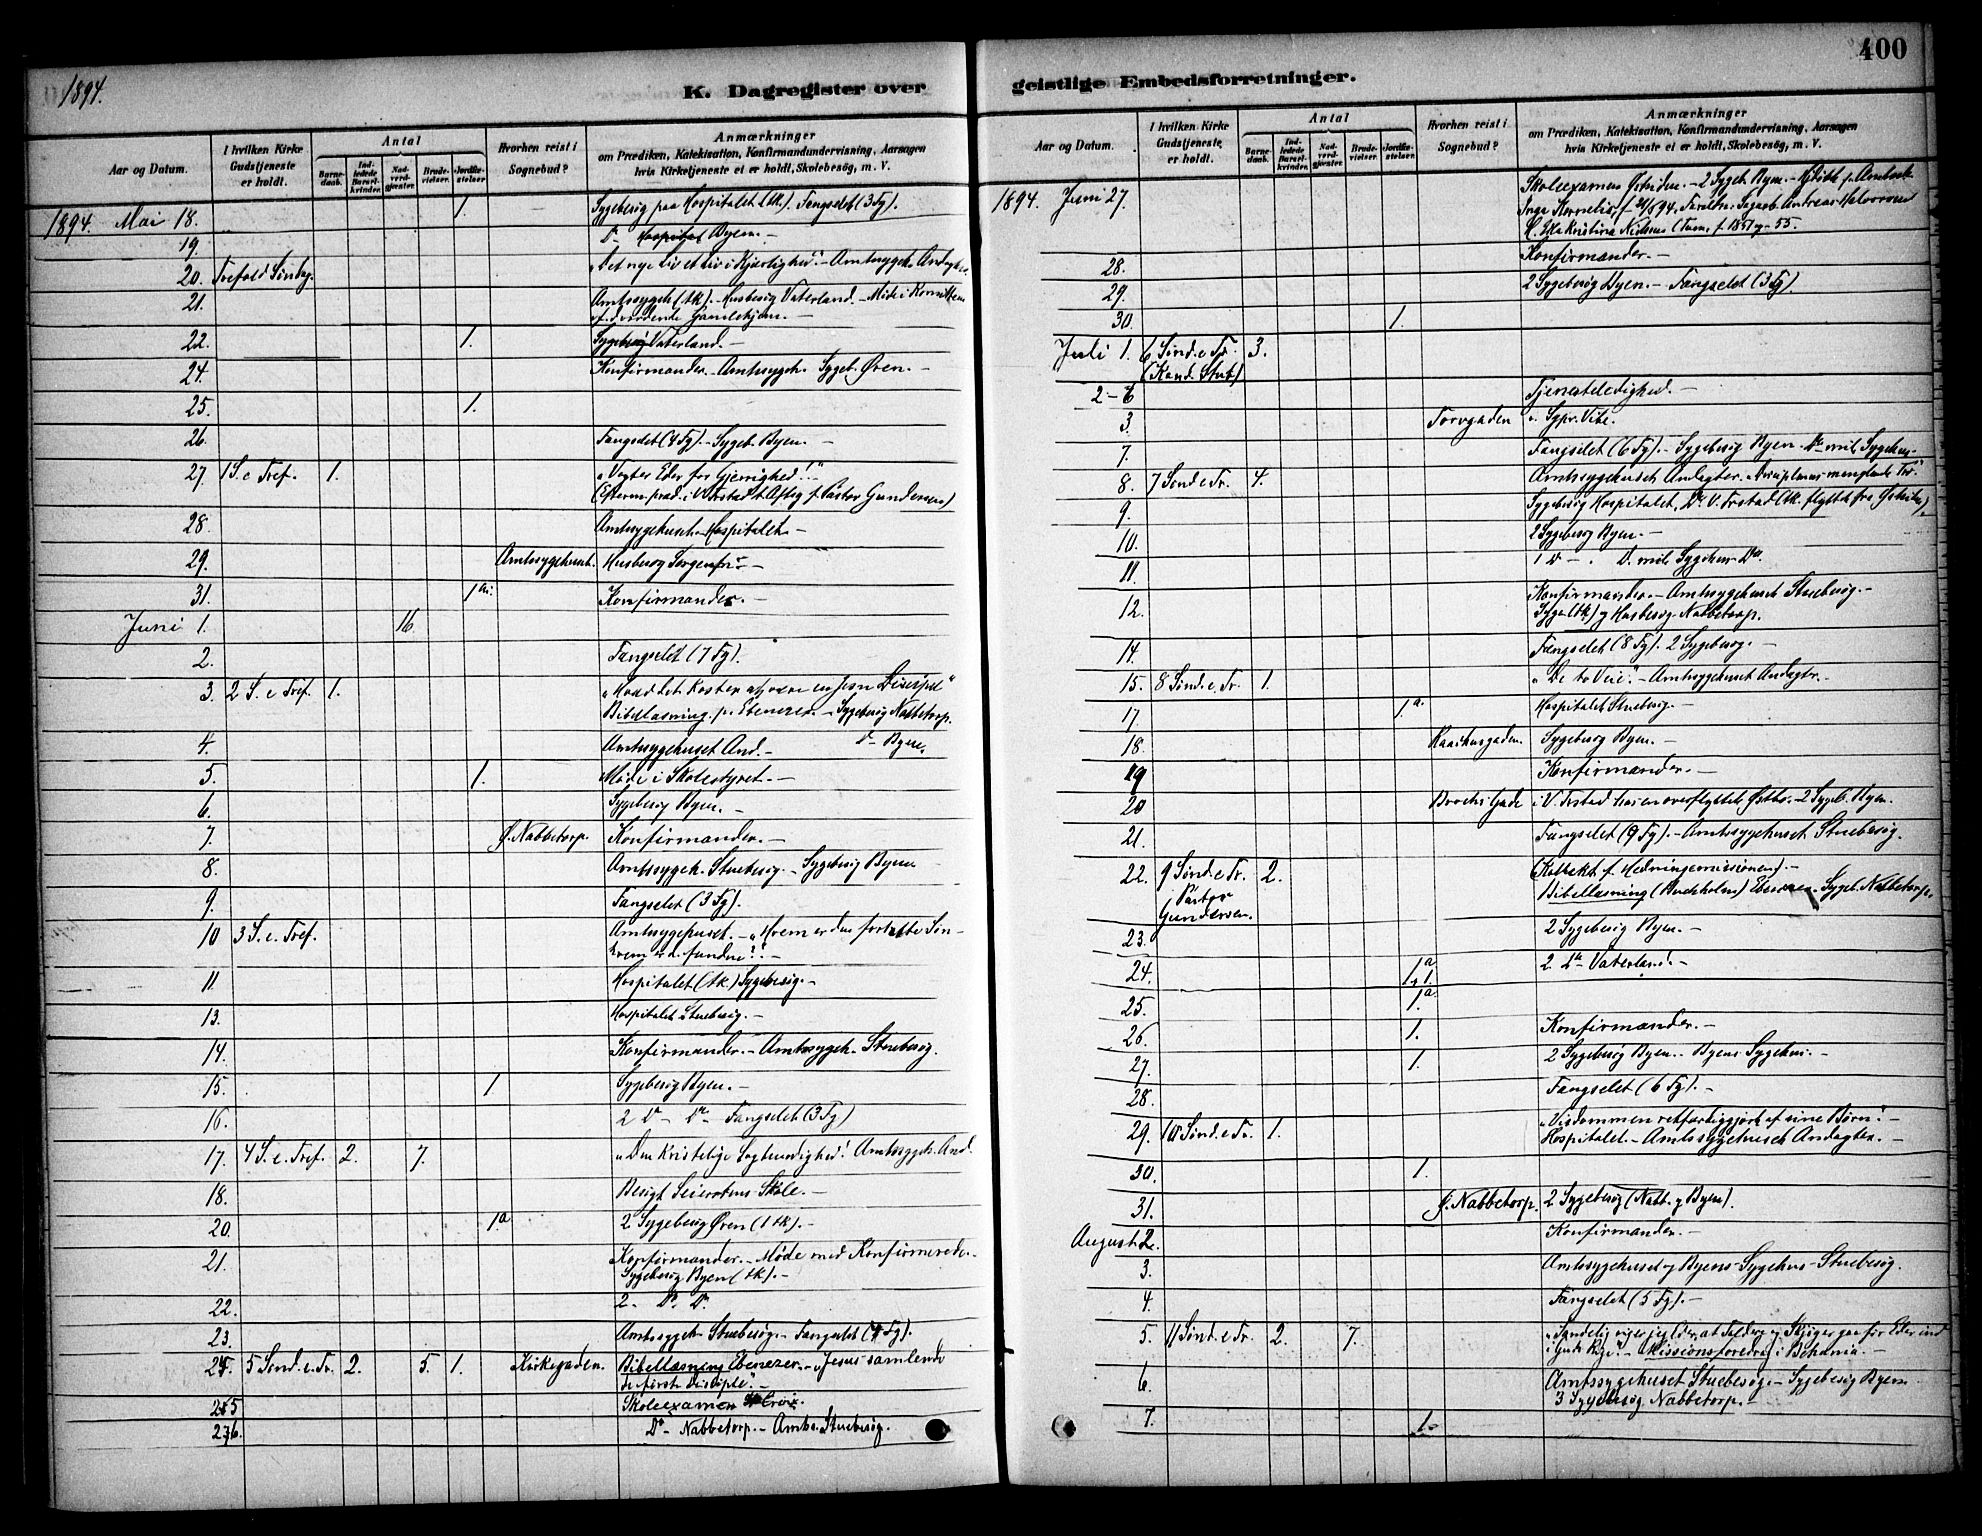 1894.
400
K. Dagregister over
geistlige Embedsforretninger.
Aar og Datum.
I hvilken Kirke Gudstjeneste er holdt.
Antal
Barnedaab.
Indledede Barselkvinder.
Nadverdgjester.
Brudevielser.
Jordfæstelser.
Hvorhen reist i Sognebud?
Anmærkninger
om Prædiken, Katekisation, Konfirmandundervisning, Aarsagen
hvis Kirketjeneste ei er holdt, Skolebesøg, m. V.
1894. Mai 18. 1. Sygebesøg paa Hospitalet (tk). Fængslet (3 Fg).
19. Do Hospital Byen.
20. Trefold.Søndag. "Det nye Liv et Liv i Kjærlighed." - Amtssygeh. Andagt.
21. Amtssygeh (tk). - Husbesøg Vaterland. - Møde i Komiteen
Gamlehjem. -
22. 1. Sygebesøg Vaterland. -
24. Konfirmander. - Amtssygeh. Sygeb. Øren. -
25. 1.
26. Fængslet (4 Fg). - Sygeb. Byen. -
27. 1 S. e Tref. 1. "Vogter Eder for Gjerrighed!"
(Efterm. præd. i V. Frstad f. Pastor Gundersen)
28. Amtssygehuset - Hospitalet. -
29. Amtssygehuset. Husbesøg Sorgenfri -
31. 1 a. Konfirmander. -
Juni 1. 16.
2. Fængslet (7 Fg).
3. 2 S. e Tref. 1. "Hvad det koster at være en Jesu Discipel"
Bibellæsning. p. Ebenezer. - Sygebesøg Nabbetorp.
4. Amtssygehuset And. - Do Byen.
5. 1. Møde i Skolestyret. -
6. Sygebesøg Byen. -
7. Ø. Nabbetorp. Konfirmander. -
8. Amtssygeh. Stuebesøg. - Sygebesøg Byen
9. Fængslet (3 Fg).
10 3 S. e. Tref. Amtssygehuset. - "Hvem er den fortabte Søn -
hvem er d. fundne?" -
11. Hospitalet (tk) Sygebesøg. -
13. Hospitalet Stuebesøg. -
14. Konfirmander. - Amtssygeh. Stuebesøg.
15. 1. Sygebesøg Byen. -
16. 2 Do - Do - Fængslet (3 Fg)
17. 4 S. e. Tref. 2. 7. "Den Kristelige Sagtmodighed." Amtssygeh. And.
18. Besøgt Seierstens Skole. -
20. 1 a 2 Sygebesøg Øren (1 tk). -
21. Konfirmander. - Møde med Konfirmerede.
Sygebesøg Byen (tk). -
22. 2. Do Do
23. Amtssygeh. Stuebesøg. - Fængslet (4 Fg).
24. 5 Sønd. e. Tr. 2. 5. 1. Kirkegaden. Bibellæsning Ebenezer. - "Jesus samlende
de første Disciple". -
25 Skoleexamen St Croix.
26. Do - Nabbetorp. - Amts. Stuebesøg.
Aar og Datum.
I hvilken Kirke Gudstjeneste er holdt.
Antal
Barnedaab.
Indledede Barselkvinder.
Nadverdgjester.
Brudevielser.
Jordfæstelser.
Hvorhen reist i Sognebud?
Anmærkninger
om Prædiken, Katekisation, Konfirmandundervisning, Aarsagen
hvis Kirketjeneste ei er holdt, Skolebesøg, m. V.
1894. Juni 27. Skoleexamen Østsiden. - 2 Sygeb. Byen. -
Andreas Halvorsen
Kristine f. 1851 og 55.
28. Konfirmander. -
29. 2 Sygebesøg Byen. - Fængslet (3 Fg)
30. 1.
Juli 1. 6 Sønd. e Tr. 3.
(Kand. Stub)
2 - 6 Tjenesteledighed. -
3. Torvgaden v. Sgpr. Vibe.
7. Fængslet (6 Fg). - Sygebesøg Byen. Do mil. Sygehus.
8. 7 Sønd e Tr. 4. Amtssygehuset Andagter. "Disciplenes manglende Tro."
9. Sygebesøg Hospitalet, Do V. Frstad (tk. flyttet fra Østsiden).
10. 2 Sygebesøg Byen. -
11. 1 Do - . D. mil. Sygehus Do.
12. Konfirmander. - Amtssygehuset Stuebesøg. -
Syge (tk) og Husbesøg Nabbetorp.
14. Fængslet (8 Fg). 2 Sygebesøg. -
15. 8 Sønd. e. Tr. 1. "De to Veie". - Amtssygehuset Andagter. -
17. 1 a. Hospitalet Stuebesøg. -
18. Raadhusgaden. Sygebesøg Byen. -
19 Konfirmander. -
20 Brochs Gade i V. Frstad hos en overflyttet Østbo. - 2 Sygeb. Byen.
21. Fængslet (9 Fg). - Amtssygehuset Stuebesøg.
22. 9 Sønd e Tr. 2. (Kollekt f. Hedningemissionen). -
Pastor Gundersen. Bibellæsning (Buckholm) Ebenezer. Sygeb. Nabbetorp.
23. 2 Sygebesøg Byen. -
24. 1 a 1. 2 Do Vaterland. -
25. 1 a.
26 1. Konfirmander. -
27. 1. 2 Sygebesøg Byen. - Byens Sygehus. -
28. Fængslet (6 Fg). -
29. 10 Sønd. e Tr. 1. "Visdommen retfærdiggjort af sine Børn". -
Hospitalet. - Amtssygehuset Andagter. -
30. 1.
31. Ø. Nabbetorp. 2 Sygebesøg (Nabb. og Byen).
August 2. Konfirmander. -
3. Amtssygehuset og Byens Sygehus - Stuebesøg.
4. Fængslet (5 Fg). -
5. 11 Sønd. e Tr. 2. 7. "Sandelig siger jeg Eder, at Toldere og Skjøger gaa før Eder ind
i Guds Rige". - Missionsforedrag i Bethania. -
6. Amtssygehuset Stuebesøg. - Sygebesøg Byen
3 Sygebesøg Nabbetorp. -
7. 1.